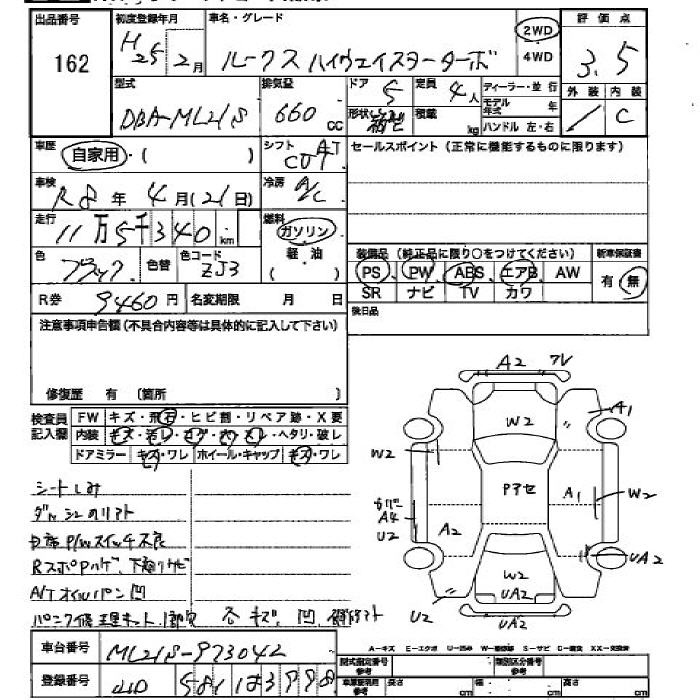 出品番号
162
初度登録年月
H25 2月
車名・グレード
ルークス ハイウェイスターターボ
2WD
4WD
評価点
3.5
外装 内装
／ C
型式
DBA-ML21S
排気量
660 CC
ドア 5
形状
定員 4人
積載 kg
ディーラー・並行
モデル年式 年
ハンドル 左・右
車歴
自家用・( )
シフト
AT
CVT
セールスポイント (正常に機能するものに限ります)
車検
R8年 4月(21日)
冷房
A/C
走行
11万5千340 km
燃料
ガソリン
軽・油
( )
色
ブラック
色替
色コード
ZJ3
装備品 (純正品に限り○をつけてください)
PS PW ABS エアB AW
SR ナビ TV カワ
新車保証書
有・無
R券 9460円
名変期限 月 日
後日品
注意事項申告欄 (不具合内容等は具体的に記入して下さい)
修復歴 有 〔箇所 〕
検査員記入欄
FW キズ・飛石・ヒビ割・リペア跡・X要
内装 キズ・汚レ・コゲ・穴・スレ・ヘタリ・破レ
ドアミラー キズ・ワレ ホイール・キャップ キズ・ワレ
シートしみ
ダッシュのリアト
D席P/Wスイッチ不良
RスポPハゲ、下廻りサビ
A/Tオイルパン凹
パンク修理キット、1部欠
A2
W2
A1
W2
Pアセ
A1
W2
カバー
A4
U2
A2
W2
UA2
UA2
U2
UA2
A-キズ E-エクボ U-凹み W-補修跡 S-サビ C-腐食 XX-交換済
車台番号
ML21S-973042
登録番号
581 は 3998
型式指定番号
類別区分番号
長さ cm
幅 cm
高さ cm